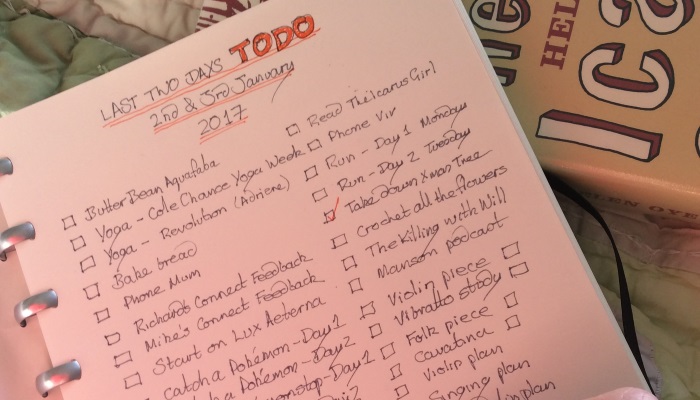 LAST TWO DAYS TODO
2nd & 3rd January
2017
Butter Bean Aquafaba
Yoga - Cole Chance Yoga Week
Yoga - Revolution (Adriene)
Bake bread
Phone Mum
Richard's Connect Feedback
Mike's Connect Feedback
Start on Lux Aeterna
Catch a Pokémon - Day 1
a Pokémon - Day 2
nonstop - Day 1
Day 2
Read The Icarus Girl
Phone Viv
Run - Day 1 Monday
Run - Day 2 Tuesday
Take down Xmas Tree
Crochet all the flowers
The Killing with Will
Manson podcast
Violin piece
Vibrato study
Folk piece
Cavatina
Violin plan
Singing plan
plan
HEL
Ica